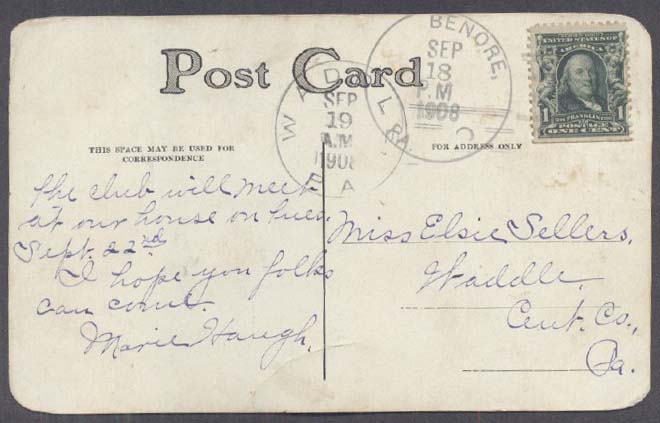 Post Card
BENORE,
SEP
18
P.M
1908
PA.
WADDLE
SEP
19
A.M
1908
PA
SERIES 1902
UNITED STATES OF
AMERICA
1 FRANKLIN 1
POSTAGE
ONE CENT
THIS SPACE MAY BE USED FOR
CORRESPONDENCE
FOR ADDRESS ONLY
The club will meet
at our house on Tues.
Sept. 22nd.
I hope you folks
can come.
Marie Haugh.
Miss Elsie Sellers,
Waddle,
Cent. Co.,
Pa.